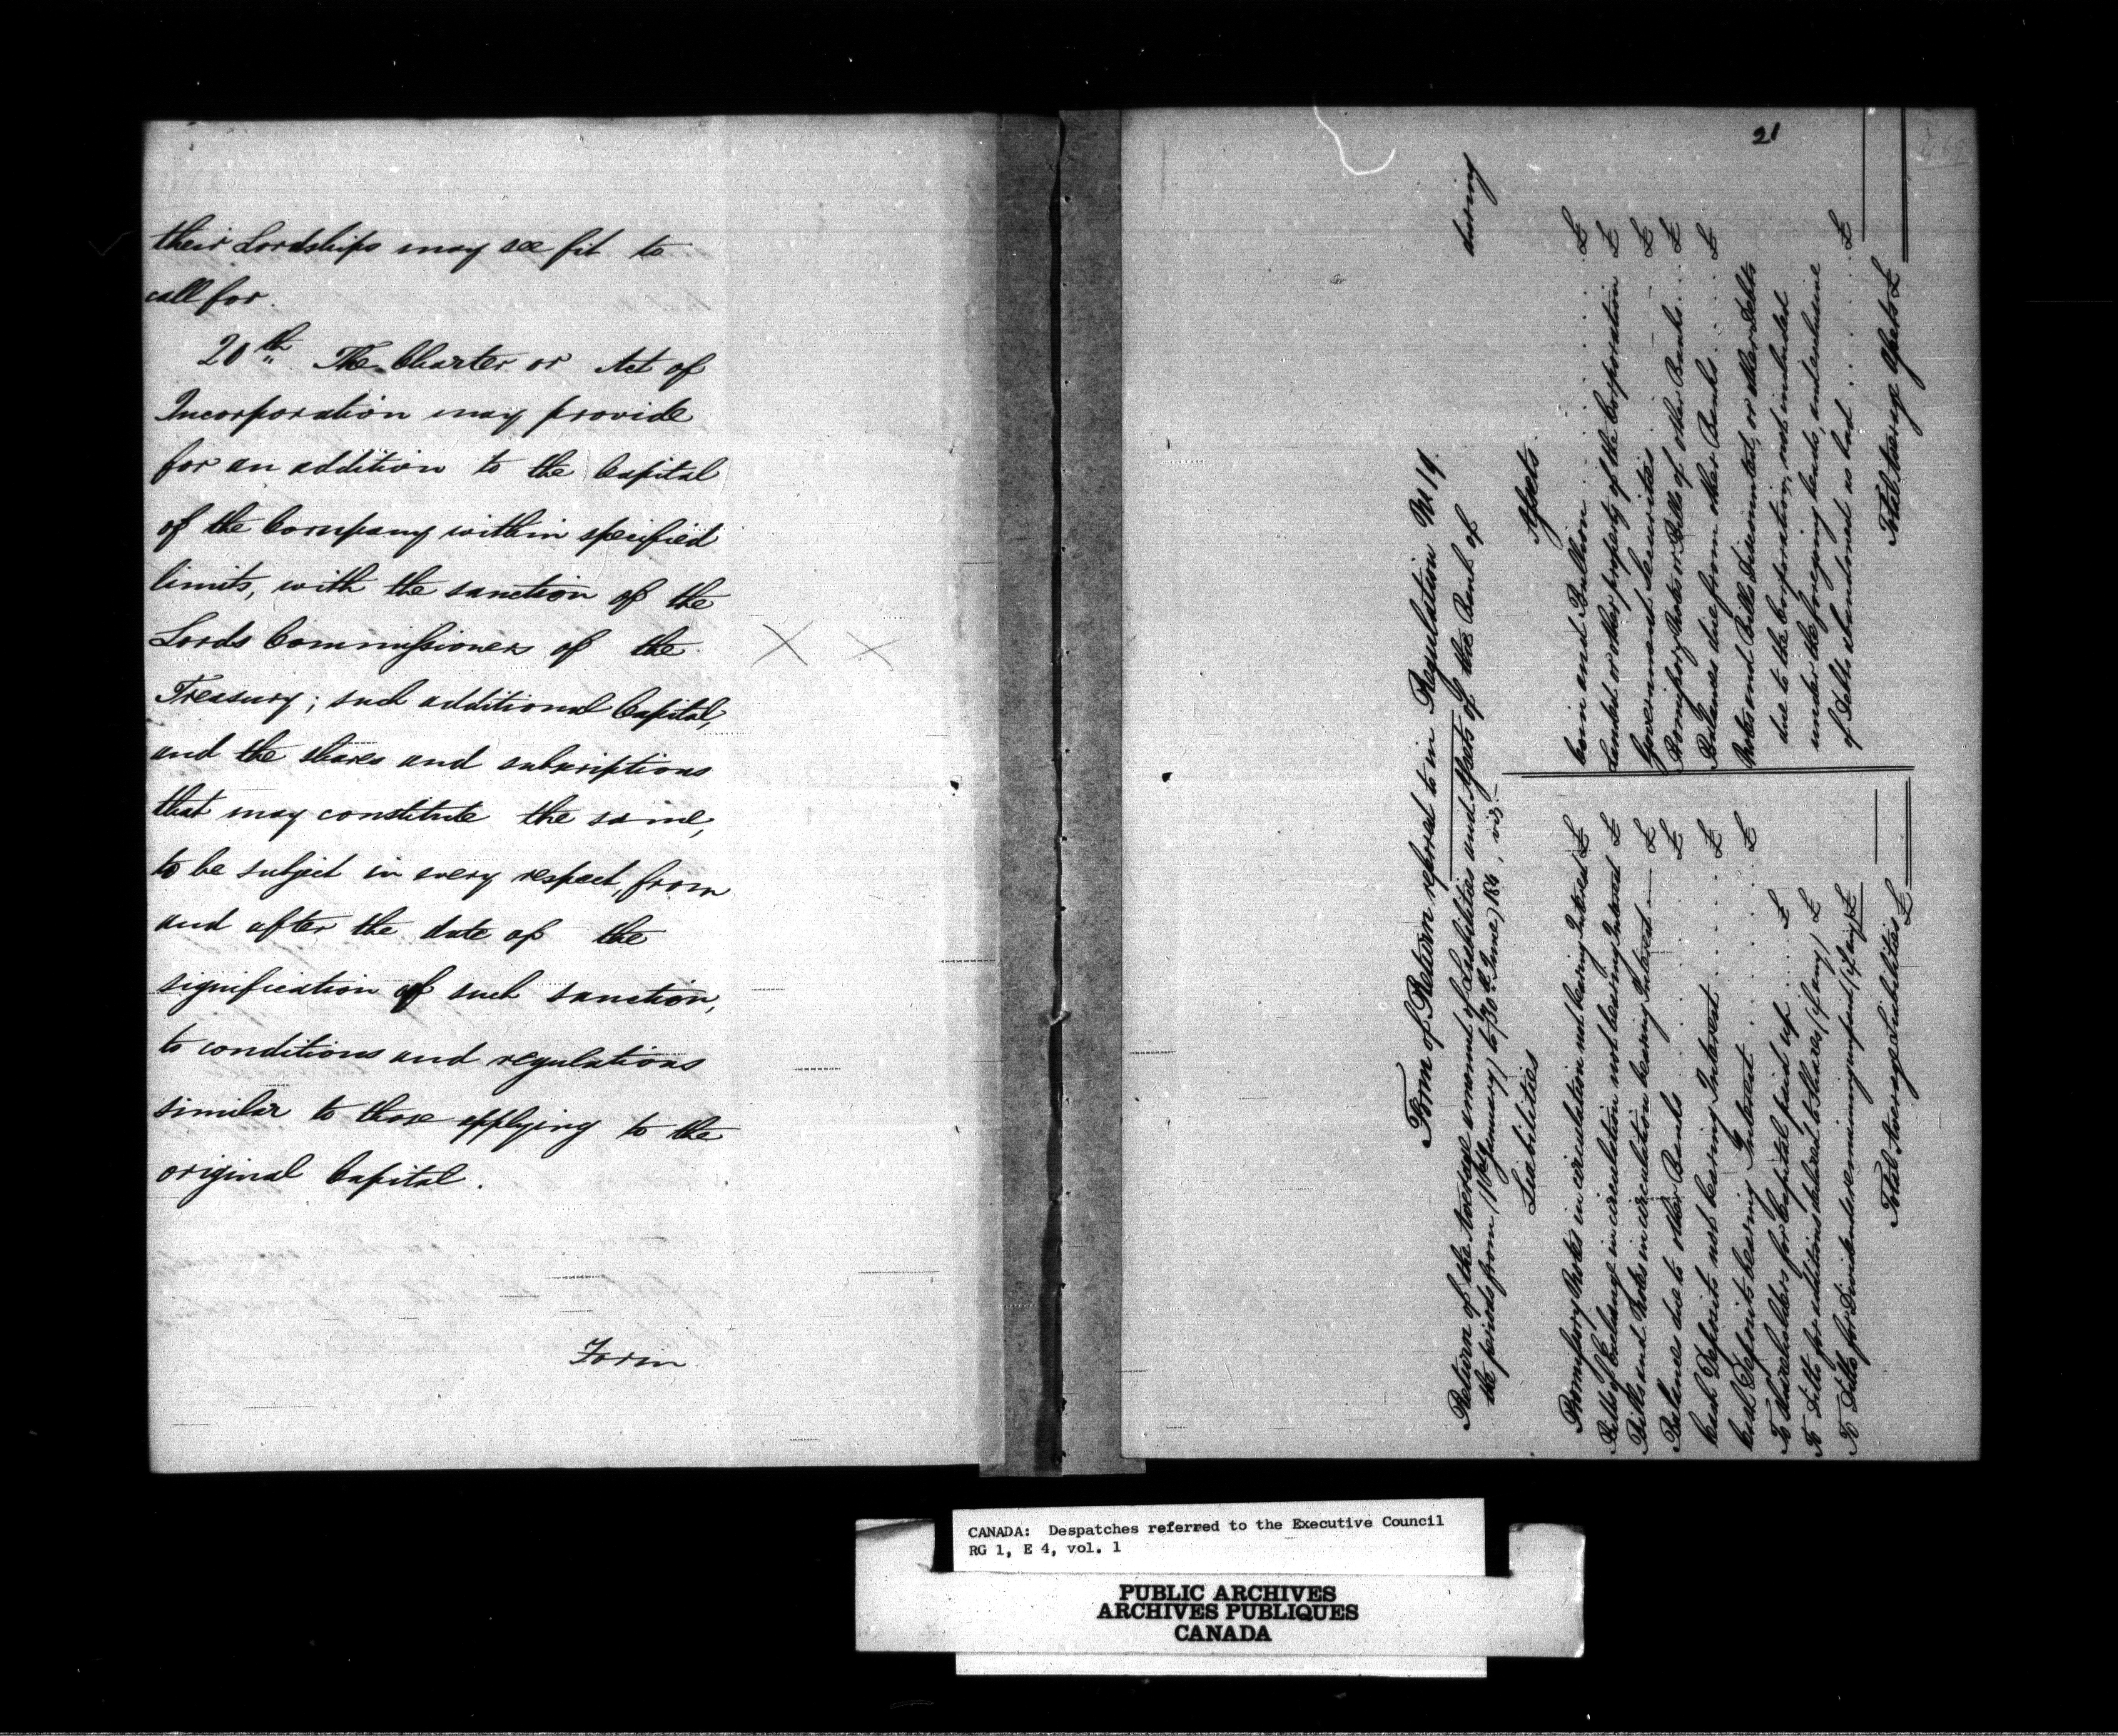 their Lordships may see fit to
call for.
20th The Charter or Act of
Incorporation may provide
for an addition to the Capital
of the Company within specified
limits, with the sanction of the
Lords Commissioners of the
Treasury; such additional Capital,
and the shares and subscriptions
that may constitute the same,
to be subject in every respect, from
and after the date of the
signification of such sanction,
to conditions and regulations
similar to those applying to the
original Capital.
Form
21
Form of Return referred to in Regulation No 19.
Return of the Average amount of Liabilities and Assets of the Bank of during
the periods from (1st January) to (30th June) 184 , viz:—
Liabilities
Promissory Notes in circulation not bearing Interest £
Bills of Exchange in circulation not bearing Interest £
Bills and Notes in circulation bearing Interest — £
Balances due to other Banks . . . . £
Cash Deposits not bearing Interest . . . . £
Cash Deposits bearing Interest . . . . £
To Shareholders for Capital paid up . . . . £
To Ditto for additions to Shares (if any) £
To Ditto for Dividends remaining unpaid (if any) £
Total Average Liabilities £
Assets.
Coin and Bullion . . . . £
Landed or other property of the Corporation £
Government Securities — — £
Promissory Notes or Bills of other Banks . . . £
Balances due from other Banks . . . . £
Notes and Bills Discounted, or other Debts
due to the Corporation, not included
under the foregoing heads, and exclusive
of Debts abandoned as bad . . . . £
Total Average Assets £
CANADA: Despatches referred to the Executive Council
RG 1, E 4, vol. 1
PUBLIC ARCHIVES
ARCHIVES PUBLIQUES
CANADA